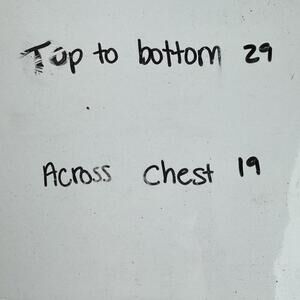 Top to bottom 29
Across Chest 19